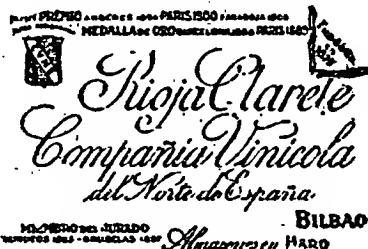 PREMIO AMBERES PARIS 1900
MEDALLA DE ORO PARIS
Rioja Clarete
Compañia Vinícola
del Norte de España
BILBAO
MIEMBRO DEL JURADO
BRUSELAS
Almacenes en HARO